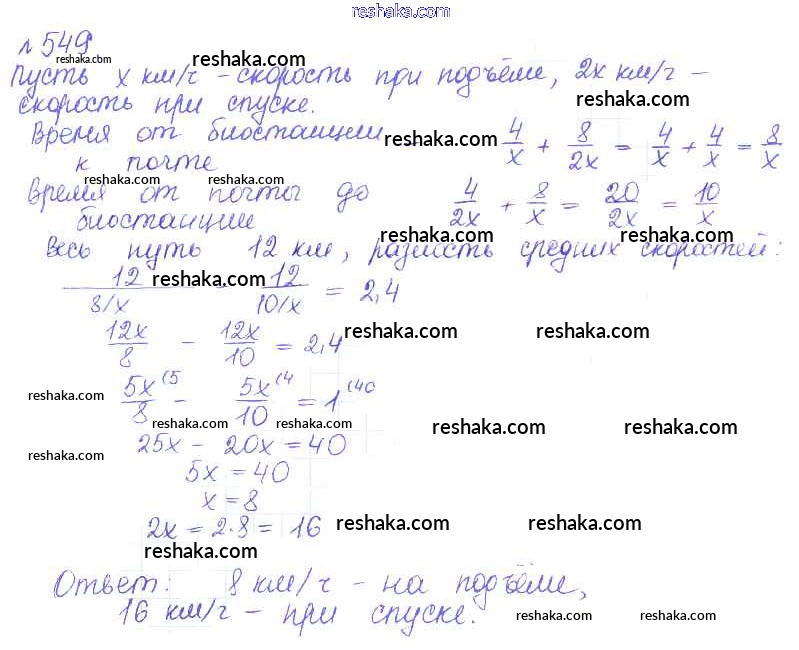 www.reshaka.com
№ 549
reshaka.com
Пусть x км/ч - скорость при подъёме, 2x км/ч -
скорость при спуске.
reshaka.com
Время от биостанции - 4/x + 8/2x = 4/x + 4/x = 8/x
к почте
reshaka.com reshaka.com
Время от почты до 4/2x + 8/x = 20/2x = 10/x
биостанции
reshaka.com reshaka.com
Весь путь 12 км, разность средних скоростей:
12/8/x - 12/10/x = 2,4
reshaka.com
12x/8 - 12x/10 = 2,4
reshaka.com reshaka.com
5x(5/8 - 5x(4/10 = 1(40
reshaka.com
reshaka.com reshaka.com reshaka.com reshaka.com
25x - 20x = 40
reshaka.com
5x = 40
x = 8
2x = 2·8 = 16
reshaka.com reshaka.com
reshaka.com
Ответ: 8 км/ч - на подъёме,
16 км/ч - при спуске.
reshaka.com reshaka.com